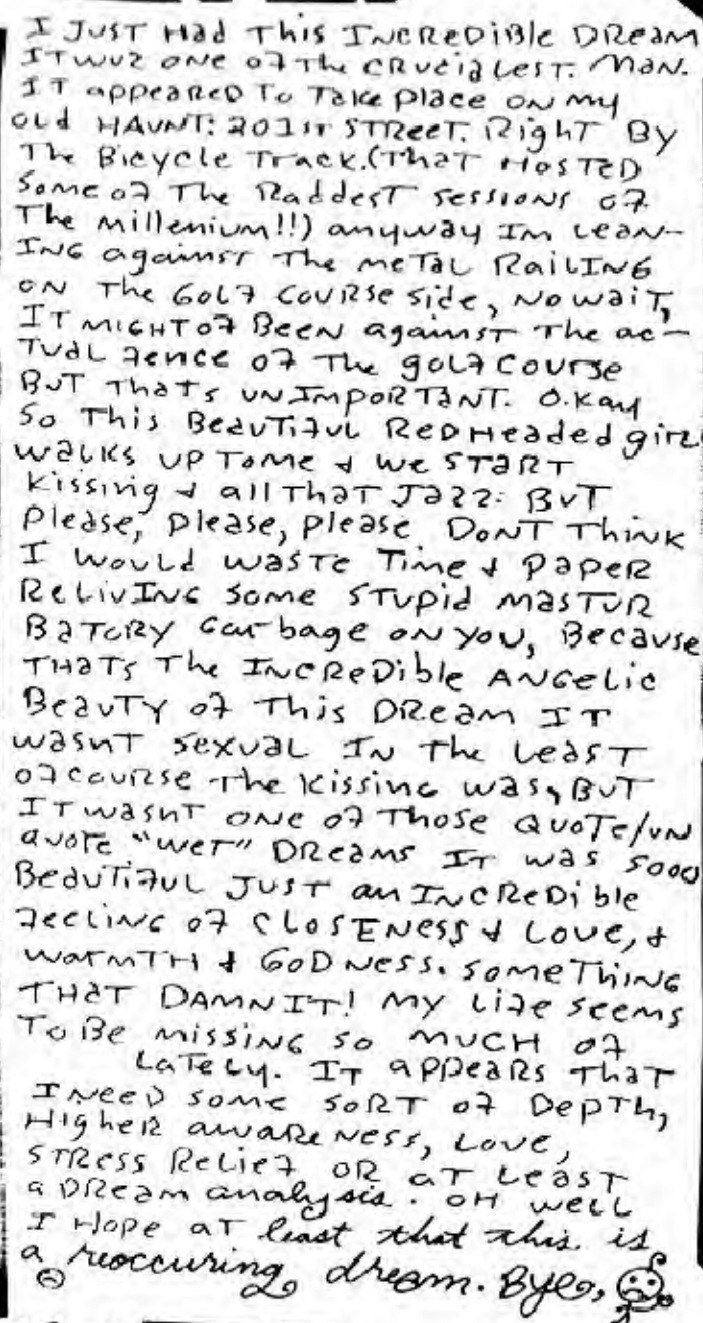 I JUST HAD THIS INCREDIBLE DREAM
IT WUZ ONE OF THE CRUCIALEST. MAN.
IT APPEARED TO TAKE PLACE ON MY
OLD HAUNT: 201st STREET. RIGHT BY
THE BICYCLE TRACK.(THAT HOSTED
SOME OF THE RADDEST SESSIONS OF
THE MILLENIUM!!) ANYWAY IM LEAN-
ING AGAINST THE METAL RAILING
ON THE GOLF COURSE SIDE, NO WAIT,
IT MIGHT OF BEEN AGAINST THE AC-
TUAL FENCE OF THE GOLF COURSE
BUT THATS UNIMPORTANT. O.KAY
SO THIS BEAUTIFUL REDHEADED GIRL
WALKS UP TO ME & WE START
KISSING & ALL THAT JAZZ. BUT
PLEASE, PLEASE, PLEASE DONT THINK
I WOULD WASTE TIME & PAPER
RELIVING SOME STUPID MASTUR
BATORY GARBAGE ON YOU, BECAUSE
THATS THE INCREDIBLE ANGELIC
BEAUTY OF THIS DREAM IT
WASNT SEXUAL IN THE LEAST
OF COURSE THE KISSING WAS, BUT
IT WASNT ONE OF THOSE QUOTE/UN
QUOTE "WET" DREAMS IT WAS SOOO
BEAUTIFUL JUST AN INCREDIBLE
FEELING OF CLOSENESS & LOVE, &
WARMTH & GODNESS. SOMETHING
THAT DAMN IT! MY LIFE SEEMS
TO BE MISSING SO MUCH OF
LATELY. IT APPEARS THAT
I NEED SOME SORT OF DEPTH,
HIGHER AWARENESS, LOVE,
STRESS RELIEF OR AT LEAST
A DREAM ANALYSIS. OH WELL
I HOPE AT least that this is
a reoccuring dream. Bye,